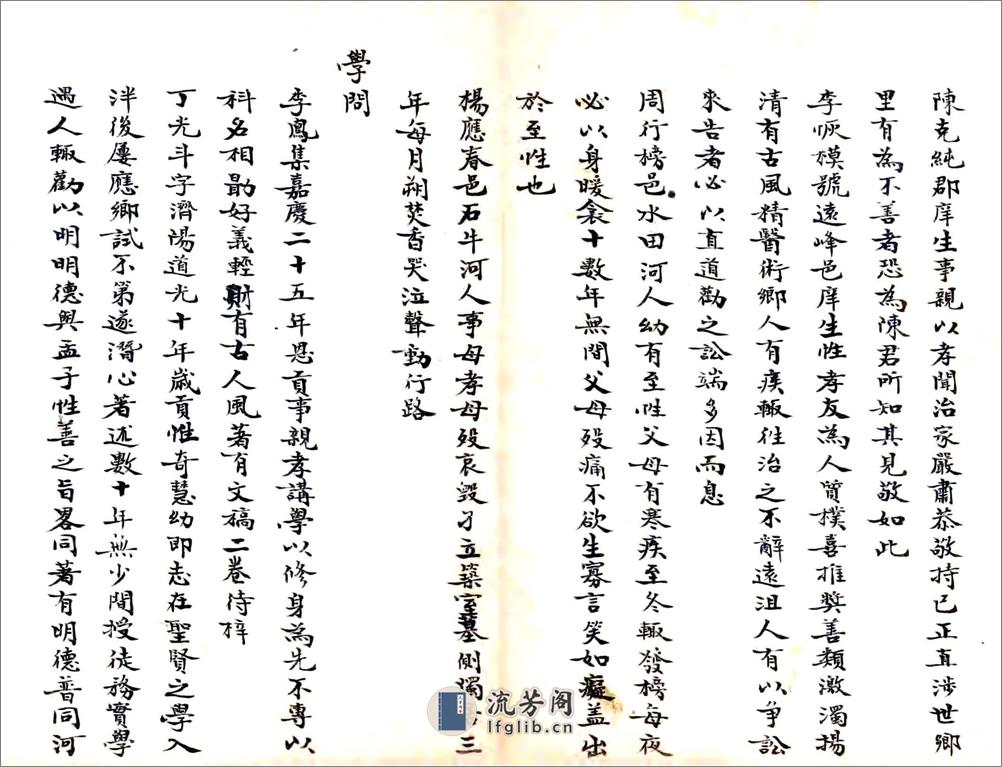 陳克純郡庠生事親以孝聞治家嚴肅恭敬持己正直涉世鄉
里有為不善者恐為陳君所知其見敬如此
李恢模號遠峰邑庠生性孝友為人質樸喜推奬善類激濁揚
清有古風精醫術鄉人有疾輙往治之不辭遠沮人有以争訟
來告者必以直道勸之訟端多因而息
周行榜邑水田河人幼有至性父母有寒疾至冬輙發榜每夜
必以身暖衾十數年無間父母歿痛不欲生寡言笑如癡盖出
於至性也
楊應春邑石牛河人事母孝母歿哀毀孑立築室墓側獨三
年每月朔焚香哭泣聲動行路
學問
李鳳集嘉慶二十五年恩貢事親孝講學以修身為先不專以
科名相勗好義輕財有古人風著有文稿二卷待梓
丁光斗字濟陽道光十年歲貢性奇慧幼即志在聖賢之學入
泮後屢應鄉試不第遂潛心著述數十年無少間授徒務實學
遇人輙勸以明明德與孟子性善之旨畧同著有明德普同河
流芳阁
lfglib.cn